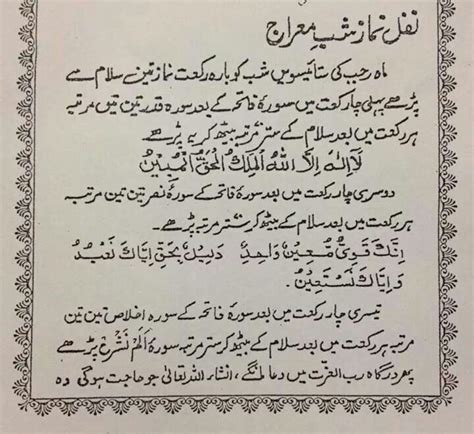 نفل نماز شبِ معراج
ماہ رجب کی ستائیسویں شب کو بارہ رکعت نماز تین سلام سے
پڑھے پہلی چار رکعت میں سورۂ فاتحہ کے بعد سورہ قدر تین تین مرتبہ
ہر رکعت میں بعد سلام کے ستر مرتبہ بیٹھ کر یہ پڑھے۔
لَا اِلٰهَ اِلَّا اللّٰهُ الْمَلِكُ الْحَقُّ الْمُبِیْنُ
دوسری چار رکعت میں بعد سورۂ فاتحہ کے سورۂ نصر تین تین مرتبہ
ہر رکعت میں بعد سلام کے بیٹھ کر ستر مرتبہ پڑھے۔
اِنَّكَ قَوِیٌّ مُّعِیْنٌ وَّاحِدٌ دَلِیْلٌ بِحَقِّ اِیَّاكَ نَعْبُدُ
وَ اِیَّاكَ نَسْتَعِیْنُ
تیسری چار رکعت میں بعد سورۂ فاتحہ کے سورہ اخلاص تین تین
مرتبہ ہر رکعت میں بعد سلام کے بیٹھ کر ستر مرتبہ سورۂ اَلَمْ نَشْرَحْ پڑھے
پھر درگاہ رب العزت میں دعا مانگے، انشاء اللہ تعالیٰ جو حاجت ہوگی وہ